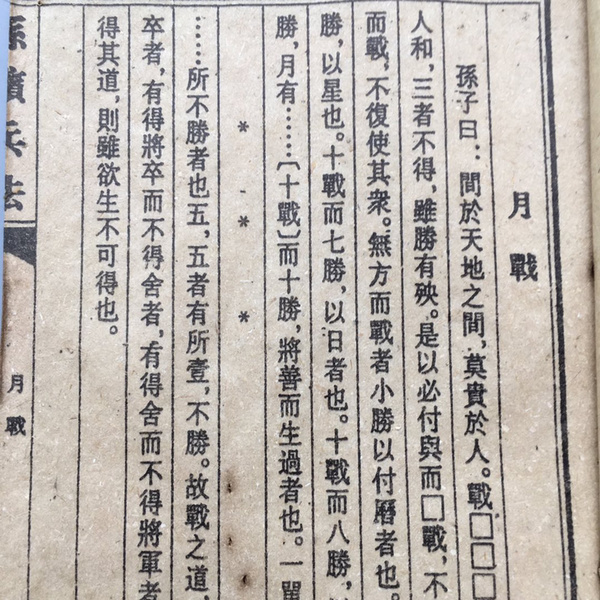 月戰
孫子曰：間於天地之間，莫貴於人。戰□□□
人和，三者不得，雖勝有殃。是以必付與而□戰，不
而戰，不復使其衆。無方而戰者小勝以付曆者也。
勝，以星也。十戰而七勝，以日者也。十戰而八勝，
勝，月有……〔十戰〕而十勝，將善而生過者也。一單
* * *
……所不勝者也五，五者有所壹，不勝。故戰之道，
卒者，有得將卒而不得舍者，有得舍而不得將軍者
得其道，則雖欲生不可得也。
孫臏兵法
月戰